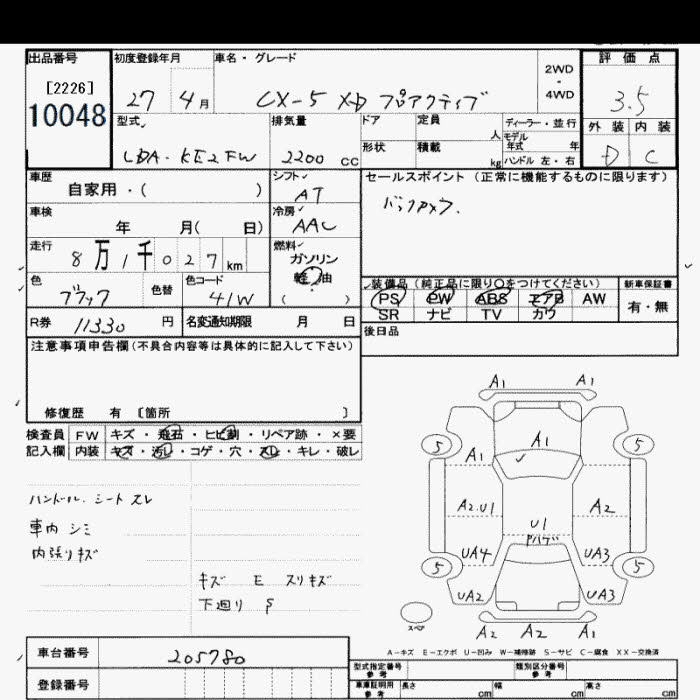 出品番号 初度登録年月 車名・グレード 2WD・4WD 評価点
[2226]
10048
27 4月 CX-5 XD プロアクティブ 3.5
型式 排気量 ドア 定員 人 ディーラー・並行 外装 内装
LDA-KE2FW 2200 CC 形状 積載 kg モデル年式 年 ハンドル 左・右 D C
車歴 シフト セールスポイント (正常に機能するものに限ります)
自家用・( ) AT バックカメラ.
車検 冷房
年 月( 日) AAC
走行 燃料
8万1千027km ガソリン
軽油
( )
色 色替 色コード 装備品 (純正品に限り〇をつけてください) 新車保証書
ブラック 41W PS PW ABS エアB AW 有・無
SR ナビ TV カワ
R券 11330 円 名変通知期限 月 日 後日品
注意事項申告欄(不具合内容等は具体的に記入して下さい)
修復歴 有 〔箇所 〕
検査員 FW キズ・飛石・ヒビ割・リペア跡・×要
記入欄 内装 キズ・汚れ・コゲ・穴・スレ・キレ・破レ
ハンドル、シート スレ
車内 シミ
内張りキズ
キズ E スリキズ
下廻り S
A1 A1
5 A1 5
A1
A2.U1 A2
U1
UA4 UA3
5 5
UA2 UA3
スペア
A2 A2 A1
A-キズ E-エクボ U-凹み W-補修跡 S-サビ C-腐食 XX-交換済
車台番号 205780
登録番号
型式指定番号 参考 類別区分番号 参考
車庫証明用 参考 長さ cm 幅 cm 高さ cm